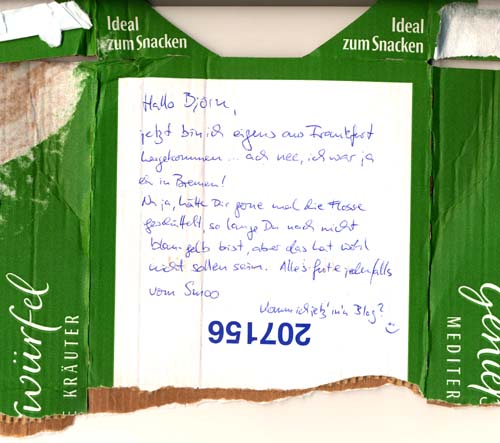 Ideal
zum Snacken
Ideal
zum Snacken
Hallo Björn,
jetzt bin ich eigens aus Frankfurt
hergekommen... ach nee, ich war ja
eh in Bremen!
Na ja, hätte Dir gerne mal die Flosse
geschüttelt, so lange Du noch nicht
blau-gelb bist, aber das hat wohl
nicht sollen sein. Alles Gute jedenfalls
vom
Komm ich jetz' in'n Blog?
207156
würfel
E KRÄUTER
MEDITER